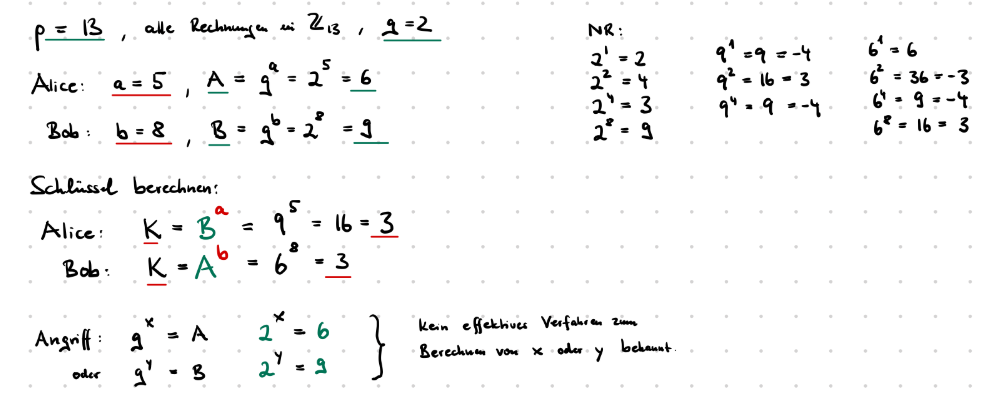 p = 13 , alle Rechnungen in ℤ₁₃ , g = 2
Alice: a = 5 , A = g^a = 2^5 = 6
Bob: b = 8 , B = g^b = 2^8 = 9
NR:
2^1 = 2
2^2 = 4
2^4 = 3
2^8 = 9
9^1 = 9 = -4
9^2 = 16 = 3
9^4 = 9 = -4
6^1 = 6
6^2 = 36 = -3
6^4 = 9 = -4
6^8 = 16 = 3
Schlüssel berechnen:
Alice: K = B^a = 9^5 = 16 = 3
Bob: K = A^b = 6^8 = 3
Angriff: g^x = A 2^x = 6
oder g^y = B 2^y = 9
Kein effektives Verfahren zum
Berechnen von x oder y bekannt.